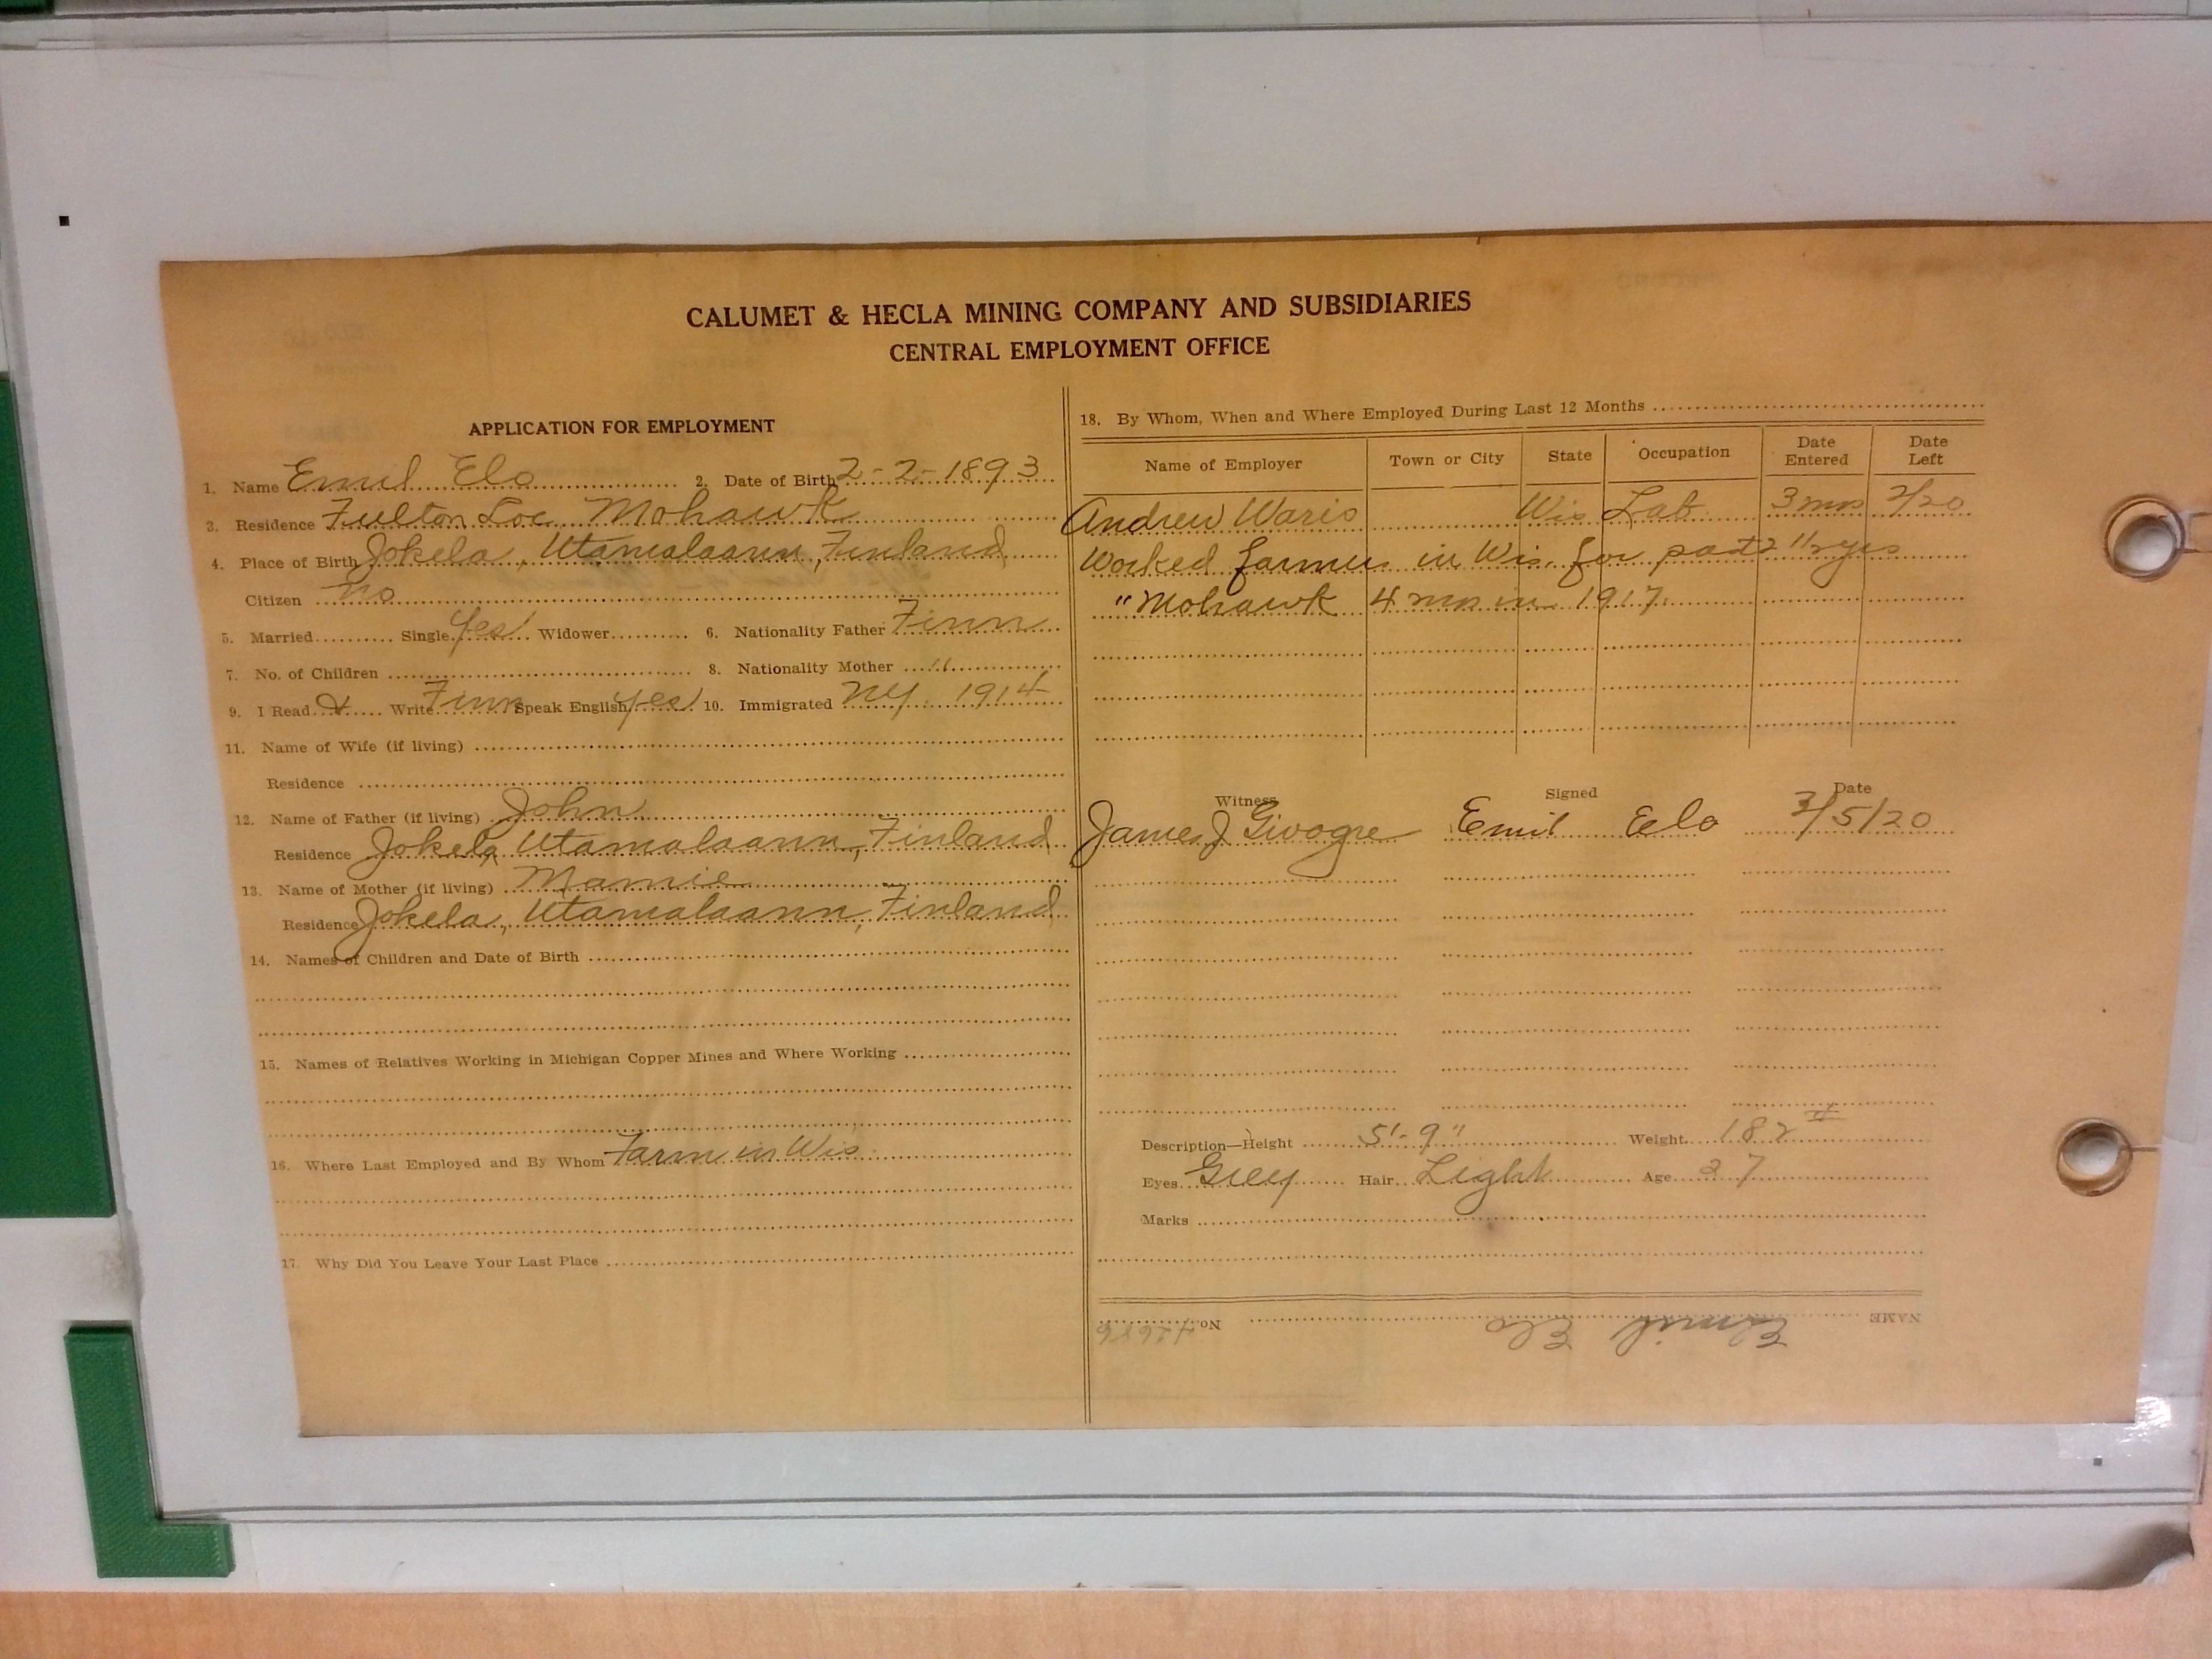 CALUMET & HECLA MINING COMPANY AND SUBSIDIARIES
CENTRAL EMPLOYMENT OFFICE
APPLICATION FOR EMPLOYMENT
1. Name Emil Elo 2. Date of Birth 2-2-1893
3. Residence Fulton Loc Mohawk
4. Place of Birth Jokela, Utamalaann, Finland
Citizen No
5. Married Single Yes Widower 6. Nationality Father Finn
7. No. of Children 8. Nationality Mother "
9. I Read & Write Finn Speak English Yes 10. Immigrated NY. 1914
11. Name of Wife (if living)
Residence
12. Name of Father (if living) John
Residence Jokela, Utamalaann, Finland
13. Name of Mother (if living) Mamie
Residence Jokela, Utamalaann, Finland
14. Names of Children and Date of Birth
15. Names of Relatives Working in Michigan Copper Mines and Where Working
16. Where Last Employed and By Whom Farm in Wis.
17 Why Did You Leave Your Last Place
18. By Whom, When and Where Employed During Last 12 Months
Name of Employer Town or City State Occupation Date Entered Date Left
Andrew Waris Wis Lab 3 mos 2/20
Worked farmer in Wis. for past 2 1/2 yrs
" Mohawk 4 mos in 1917.
Witness Signed Date
James J Emil Eelo 3/5/20
Description—Height 5'-9" Weight 182 #
Eyes Grey Hair Light Age 27
Marks
NAME Emil Elo No.